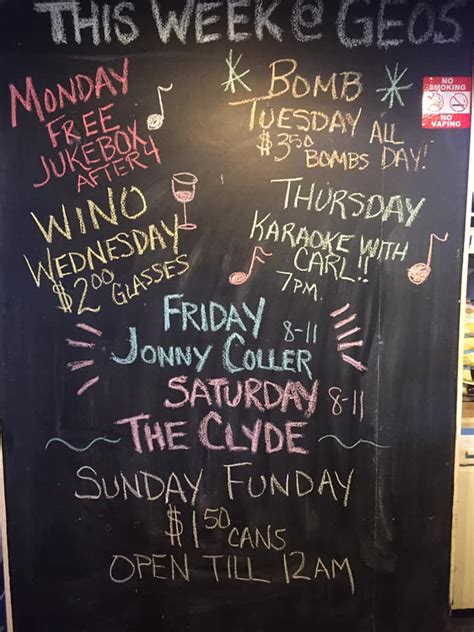 THIS WEEK @ GEOS
MONDAY
FREE
JUKEBOX
AFTER 4
BOMB
TUESDAY ALL
$3.50 BOMBS DAY!
NO
SMOKING
NO
VAPING
WINO
WEDNESDAY
$2.00 GLASSES
THURSDAY
KARAOKE WITH
CARL!!
7PM.
FRIDAY 8-11
JONNY COLLER
SATURDAY 8-11
THE CLYDE
SUNDAY FUNDAY
$1.50 CANS
OPEN TILL 12AM